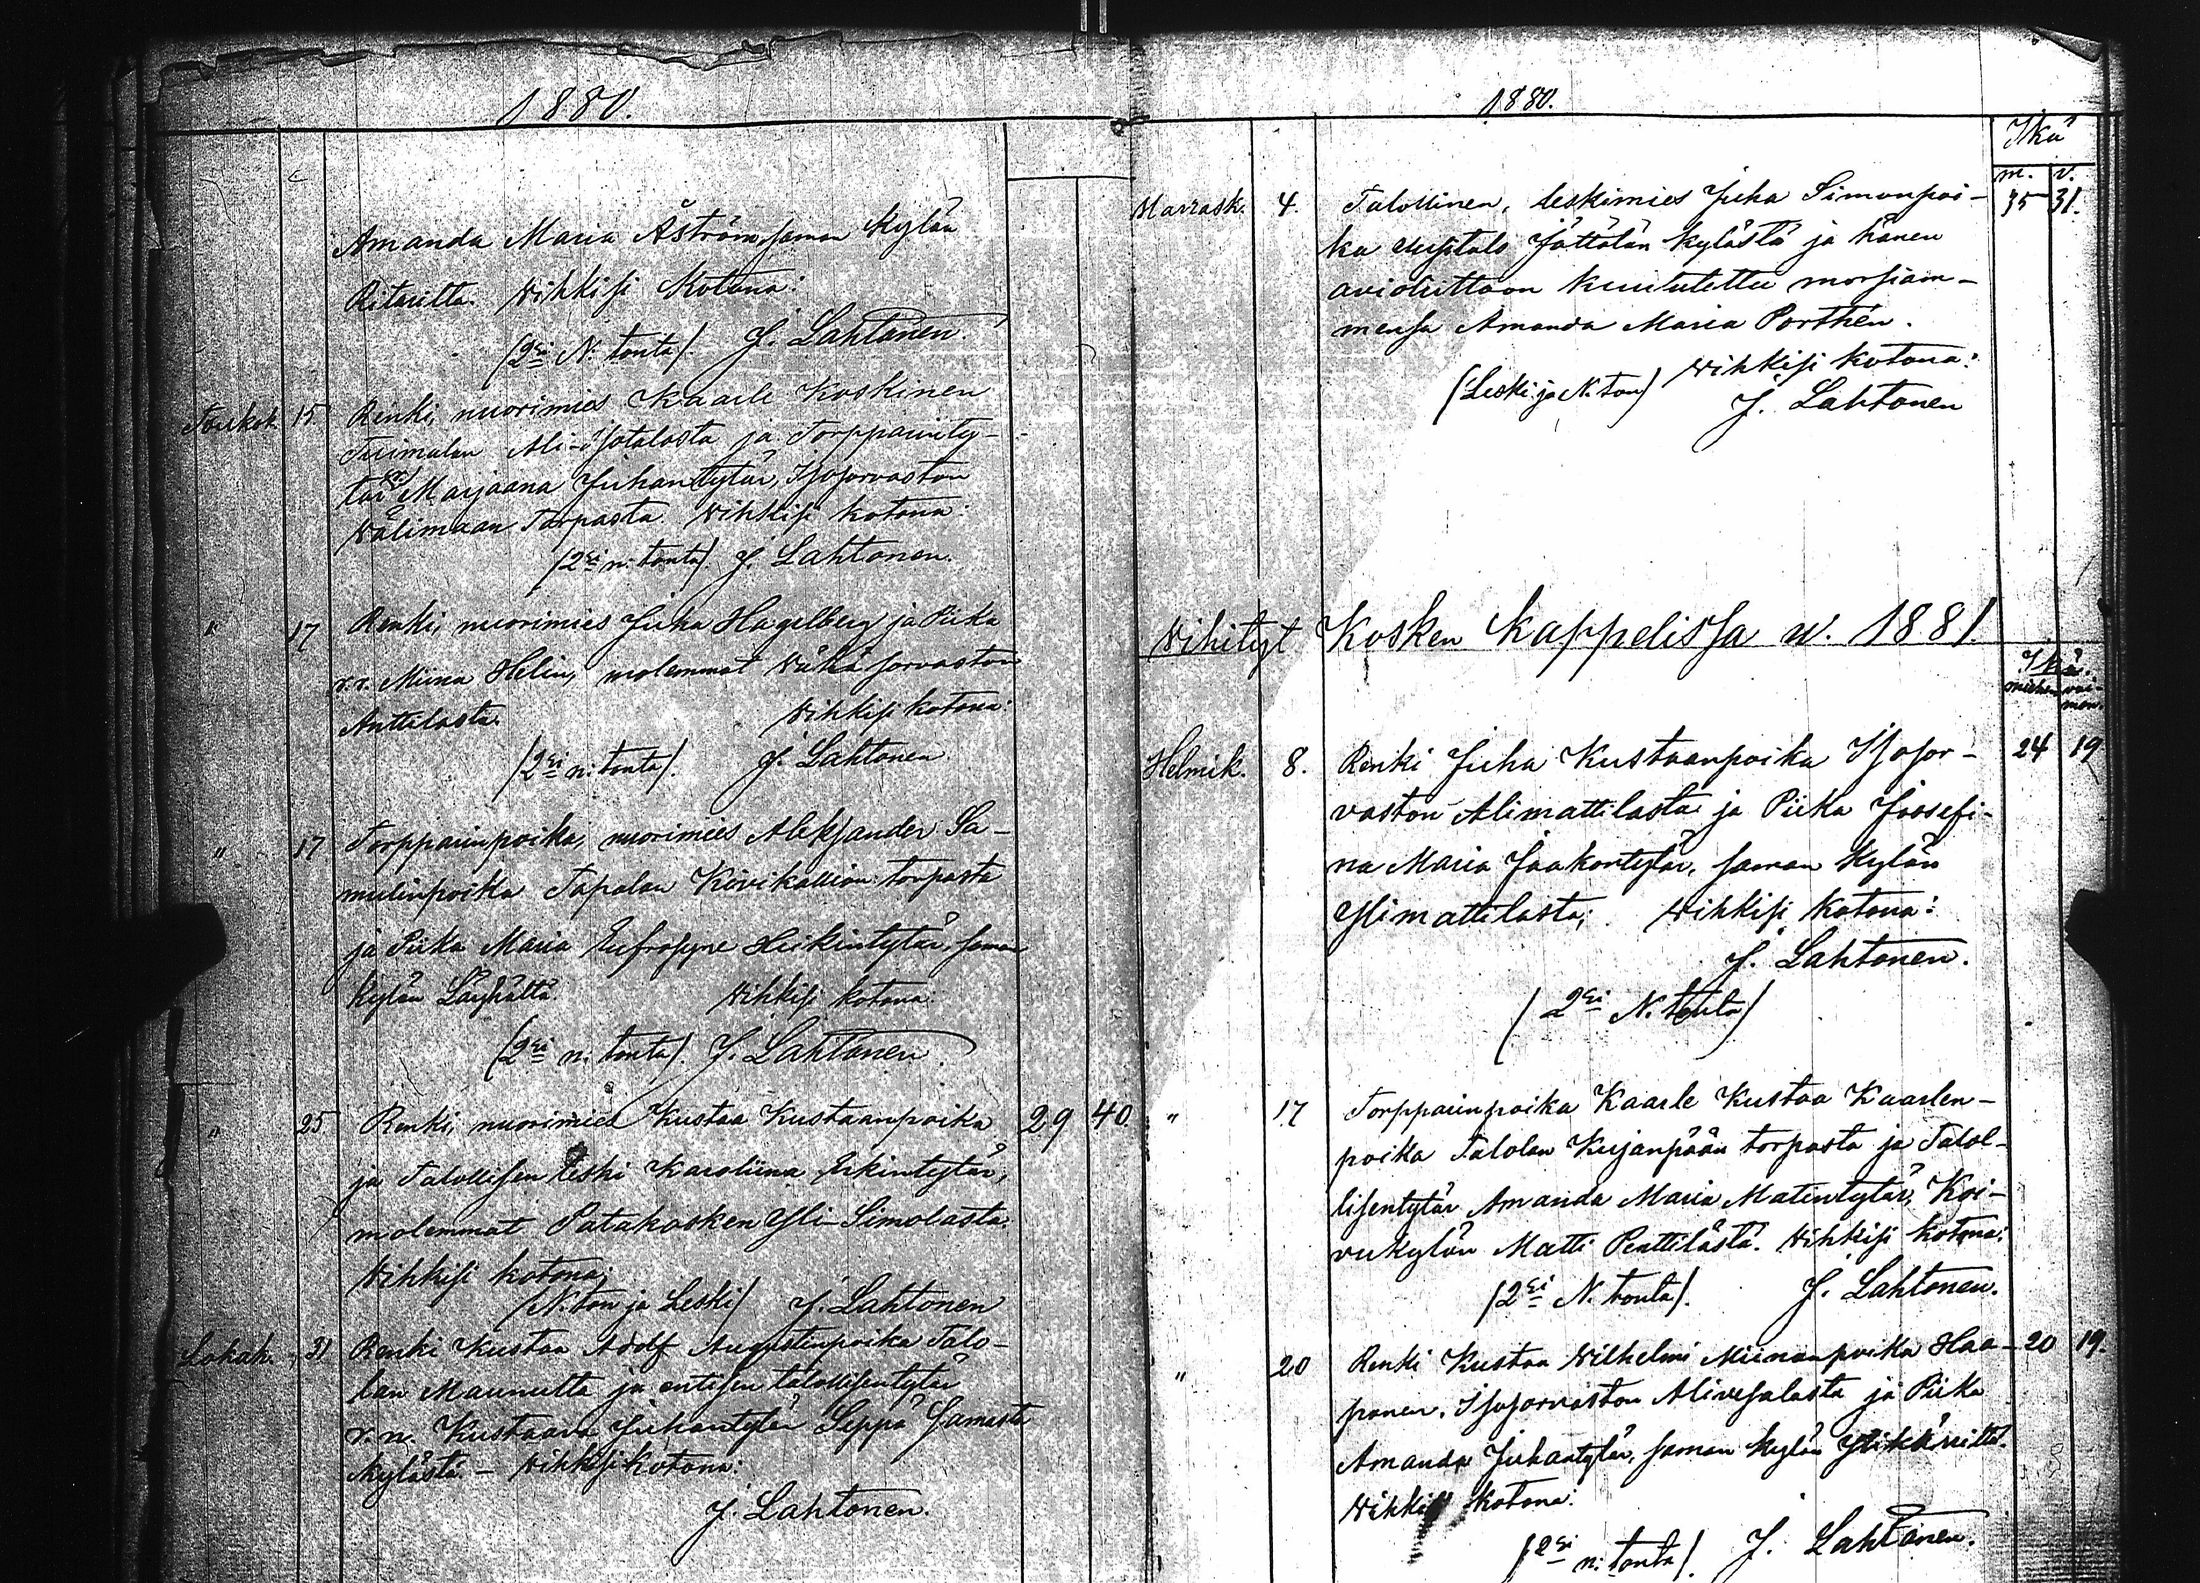 1880.
Amanda Maria Åström saman kylän
Ritarilta. Wihkisi kotona:
(2si N: tonta). J. Lahtonen.
Toukok. 15. Renki, nuorimies Kaarle Koskinen
Tuimalan Ali-Isotalosta ja Torpparinty-
tär Marjaana Juhantytär, Isosorvaston
Wälimaan Torpasta. Wihkisi kotona:
(2si n: tonta). J. Lahtonen.
" 17 Renki, nuorimies Juha Hagelberg ja Piika
Miina Helin, molemmat Wähä sorvaston
Anttilasta. Wihkisi kotona:
(2si n: tonta). J. Lahtonen.
" 17 Torpparinpoika, nuorimies Aleksander Sa-
mulinpoika Tapalan Kivikallion torpasta
ja Piika Maria Eufrosyne Heikintytär, saman
kylän Wihkisi kotona:
(2si n. tonta). J. Lahtonen
" 25 Renki, nuorimies Kustaa Kustaanpoika 29 40.
ja Talollisen leski Karoliina Erkintytär,
molemmat Patakosken Yli-Simolasta.
Wihkisi kotona;
(N: ton ja Leski) J. Lahtonen
Lokak. 31 Renki Kustaa Adolf Augustinpoika Talo-
lan Maunulta ja entisen talollisentytär
v. n. Kustaava Juhantytär Seppä samasta
kylästä. - Wihkisi kotona:
J. Lahtonen.
1880.
Ikä
m. v.
Marrask. 4. Talollinen, leskimies Juha Simonpoi- 35 31.
ka Uusitalo Jättälän kylästä ja hänen
avioliittoon kuulutettu morsiam-
mensa Amanda Maria Porthén.
Wihkisi kotona:
(Leski ja N. ton) J. Lahtonen
Wihityt Kosken kappelissa w. 1881.
Ikä.
miehen vai-
mon.
Helmik. 8. Renki Juha Kustaanpoika Isosor- 24 19
vaston Alimattilasta ja Piika Joosefi-
na Maria Jaakontytär, saman kylän
Ylimattilasta; Wihkisi kotona:
J. Lahtonen.
(2si N. tonta)
" 17 Torpparinpoika Kaarle Kustaa Kaarlen-
poika Talolan Kujanpään torpasta ja Talol-
lisentytär Amanda Maria Matintytär, Koi-
vukylän Matti Penttilästä. Wihkisi kotona:
(2si N. tonta). J. Lahtonen.
" 20 Renki Kustaa Wilhelmi Miinanpoika Haa- 20 19.
panen, Isosorvaston Alivesalasta ja Piika
Amanda Juhantytär, saman kylän
Wihkisi kotona:
(2si n: tonta). J. Lahtonen.